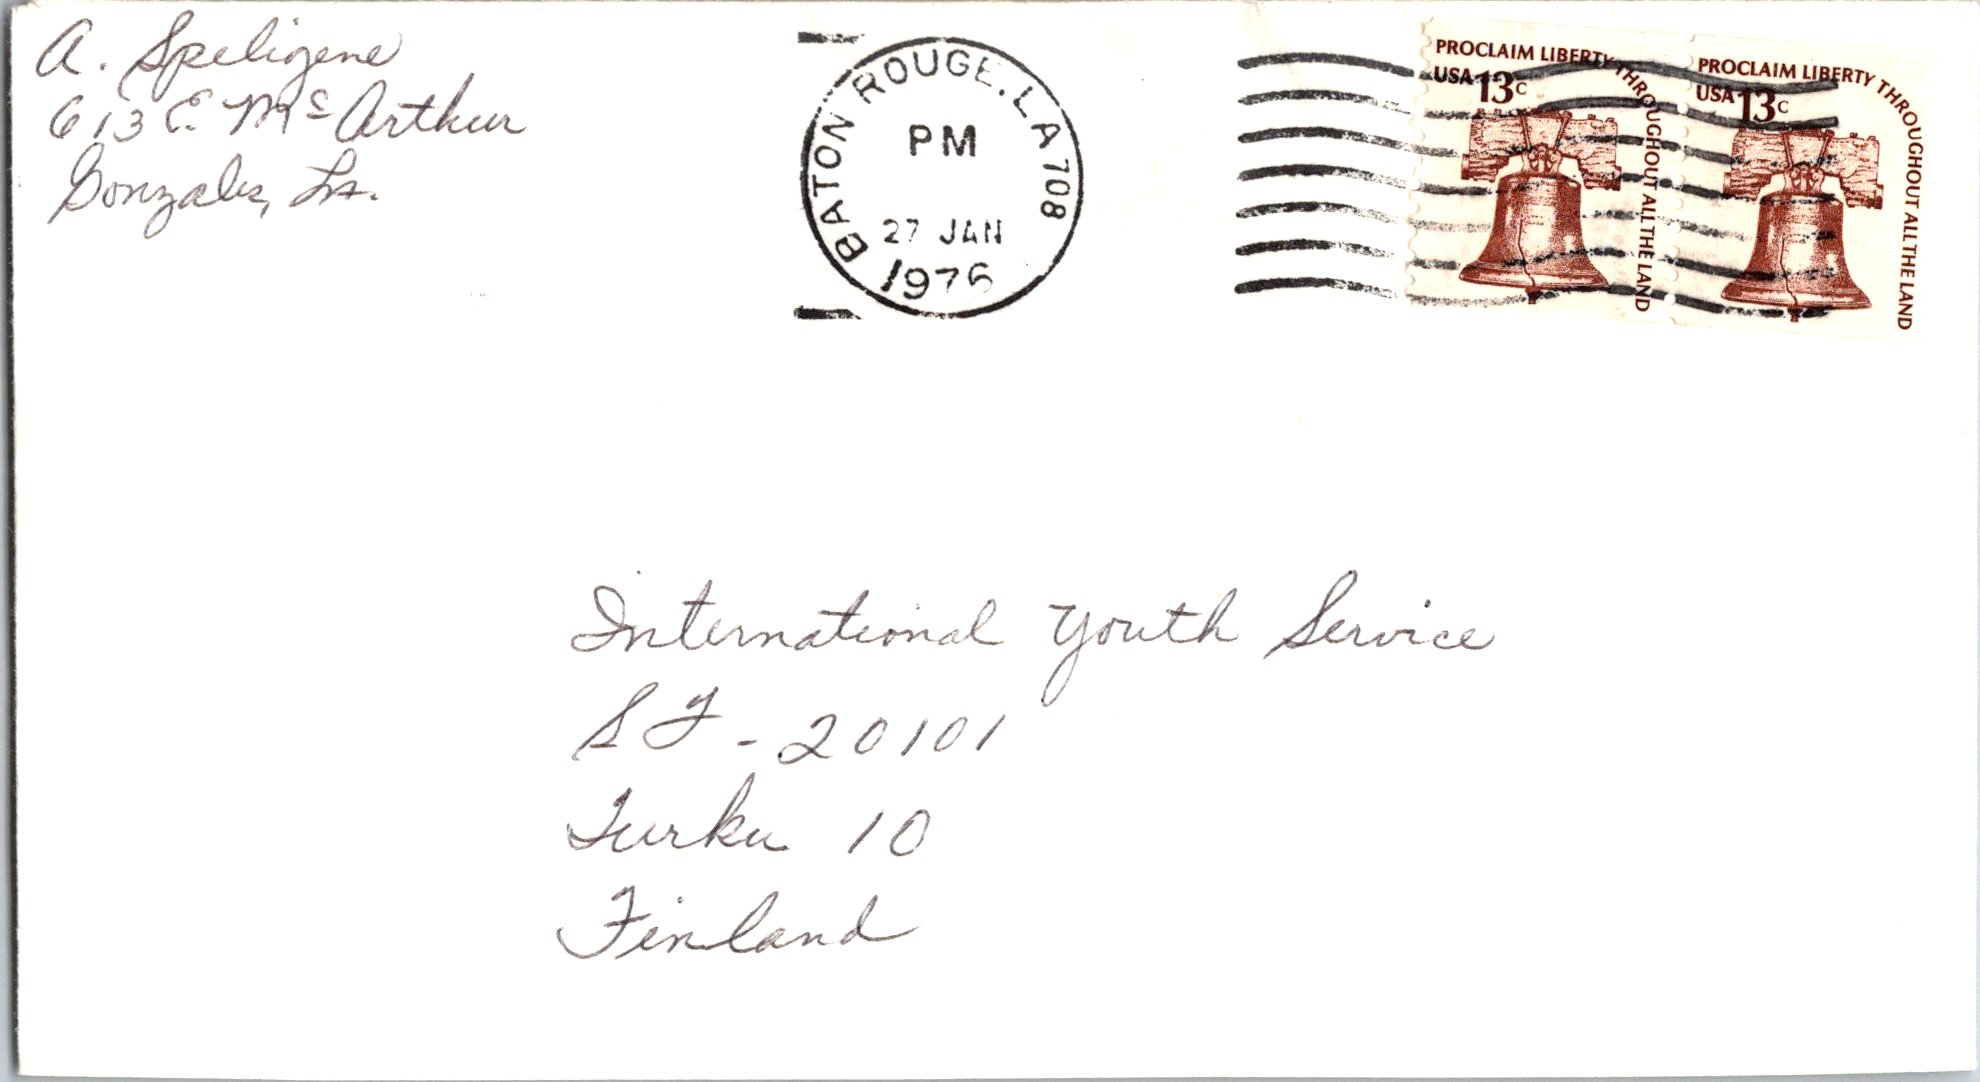 A. Speligene
613 E. Mc Arthur
Gonzales, La.
BATON ROUGE, LA 708
PM
27 JAN
1976
PROCLAIM LIBERTY THROUGHOUT ALL THE LAND
USA 13c
PROCLAIM LIBERTY THROUGHOUT ALL THE LAND
USA 13c
International Youth Service
SF - 20101
Turku 10
Finland